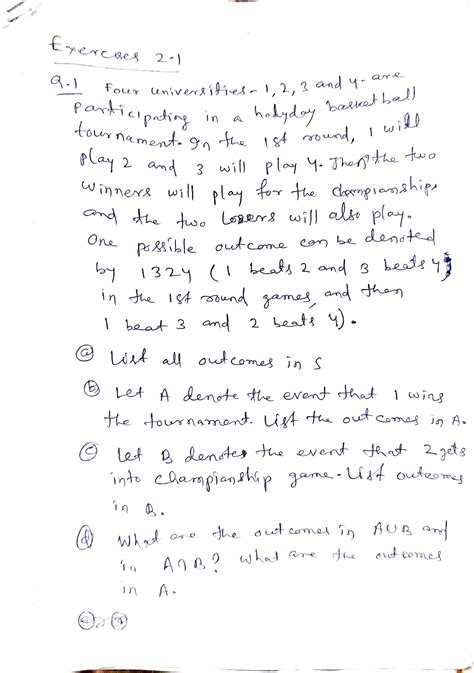 Exercises 2-1
Q.1 Four universities - 1, 2, 3 and 4 - are
participating in a holyday basketball
tournament. In the 1st round, 1 will
play 2 and 3 will play 4. Then the two
winners will play for the championship,
and the two losers will also play.
One possible outcome can be denoted
by 1324 (1 beats 2 and 3 beats 4
in the 1st round games, and then
1 beat 3 and 2 beats 4).
(a) List all outcomes in S
(b) Let A denote the event that 1 wins
the tournament. List the outcomes in A.
(c) Let B denotes the event that 2 gets
into championship game. List outcomes
in B.
(d) What are the outcomes in A∪B and
in A∩B? What are the outcomes
in A.